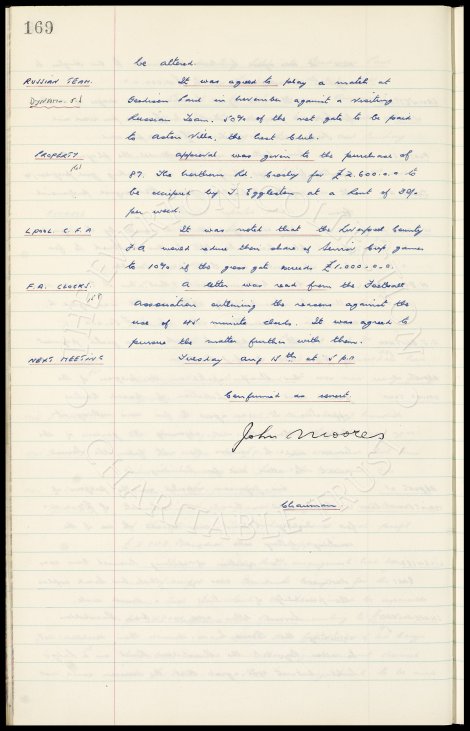 169
be altered.
RUSSIAN TEAM. It was agreed to play a match at
DYNAMO. Goodison Park in November against a visiting
Russian Team. 50% of the net gate to be paid
to Aston Villa, the host Club.
PROPERTY Approval was given to the purchase of
87. The Northern Rd. Crosby for £2.600-0-0 to
be occupied by T. Eggleston at a Rent of 30/-
per week.
LPOOL. C.F.A It was noted that the Liverpool County
F.A. would reduce their share of Senior Cup games
to 10% if the gross gate exceeds £1.000-0-0.
F.A. CLOCKS. A letter was read from the Football
Association outlining the reasons against the
use of 45 minute clocks. It was agreed to
pursue the matter further with them.
NEXT MEETING Tuesday Aug 15th at 5 p.m
Confirmed as correct
John Moores
Chairman
EVERTON COLLECTION
CHARITABLE TRUST